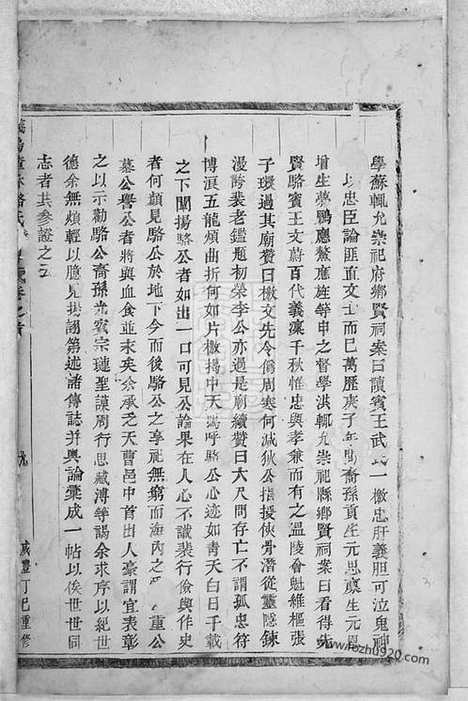 學蘇輒允崇祀府鄉賢祠案曰讀賓王武氏一檄忠肝義胆可泣鬼神
以忠臣論匪直文士而已萬歷庚子年間裔孫貢生元思廩生元恩
增生夢鴨應鰲應旌等申之督學洪輒允崇祀縣鄉賢祠案曰看得先
賢駱賓王文蔚百代義凜千秋惟忠與孝兼而有之溫陵俞魁維樞張
子環過其廟贊曰檄文先令僞周寒何減狄公指授俠骨潛從靈隱錬
漫誇裴老鑑題初榮李公亦過是廟續贊曰六尺問存亡不謂孤忠符
博浪五龍煩曲折何如片檄揭中天嗚呼駱公心迹如靑天白日千載
之下闡揚駱公者如出一口可見公論果在人心不識裴行儉與作史
者何顏見駱公於地下今而後駱公之享祀無窮而海內之 重公
墓公譽公者將與血食並末矣余承乏天曹邑中首出人豪謂宜表彰
之以示勸駱公裔孫光賓宗璉聖謨周行思藏溥等謁余求序以紀世
德余無煩輕以臆見揚詡第述諸傳誌并輿論彙成一帖以俟世世同
志者共參證之云
卷之首
咸豐丁巳重修
www.fozhu920.com